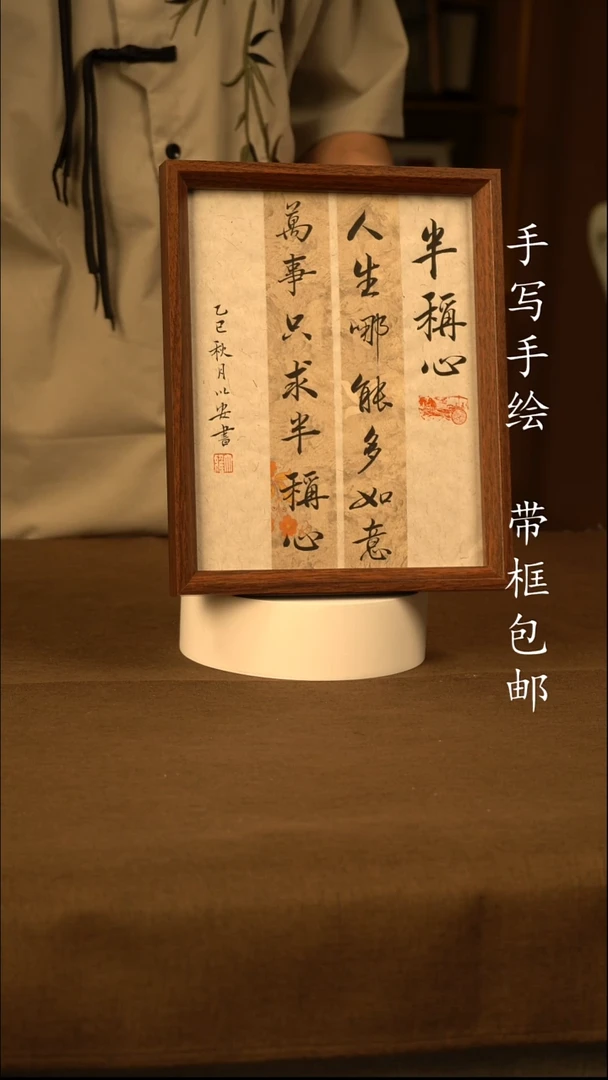 半稱心
人生哪能多如意
萬事只求半稱心
乙巳秋月以安書
手写手绘 带框包邮